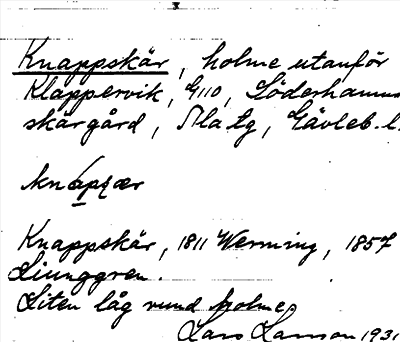 Knappskär, holme utanför
Klappervik, G110, Söderhamns
skärgård, Ala tg, Gävleb. l.
Knappskär, 1811 Wenning, 1857
Ljunggren.
Liten låg rund holme,
Lars Larsson 1931